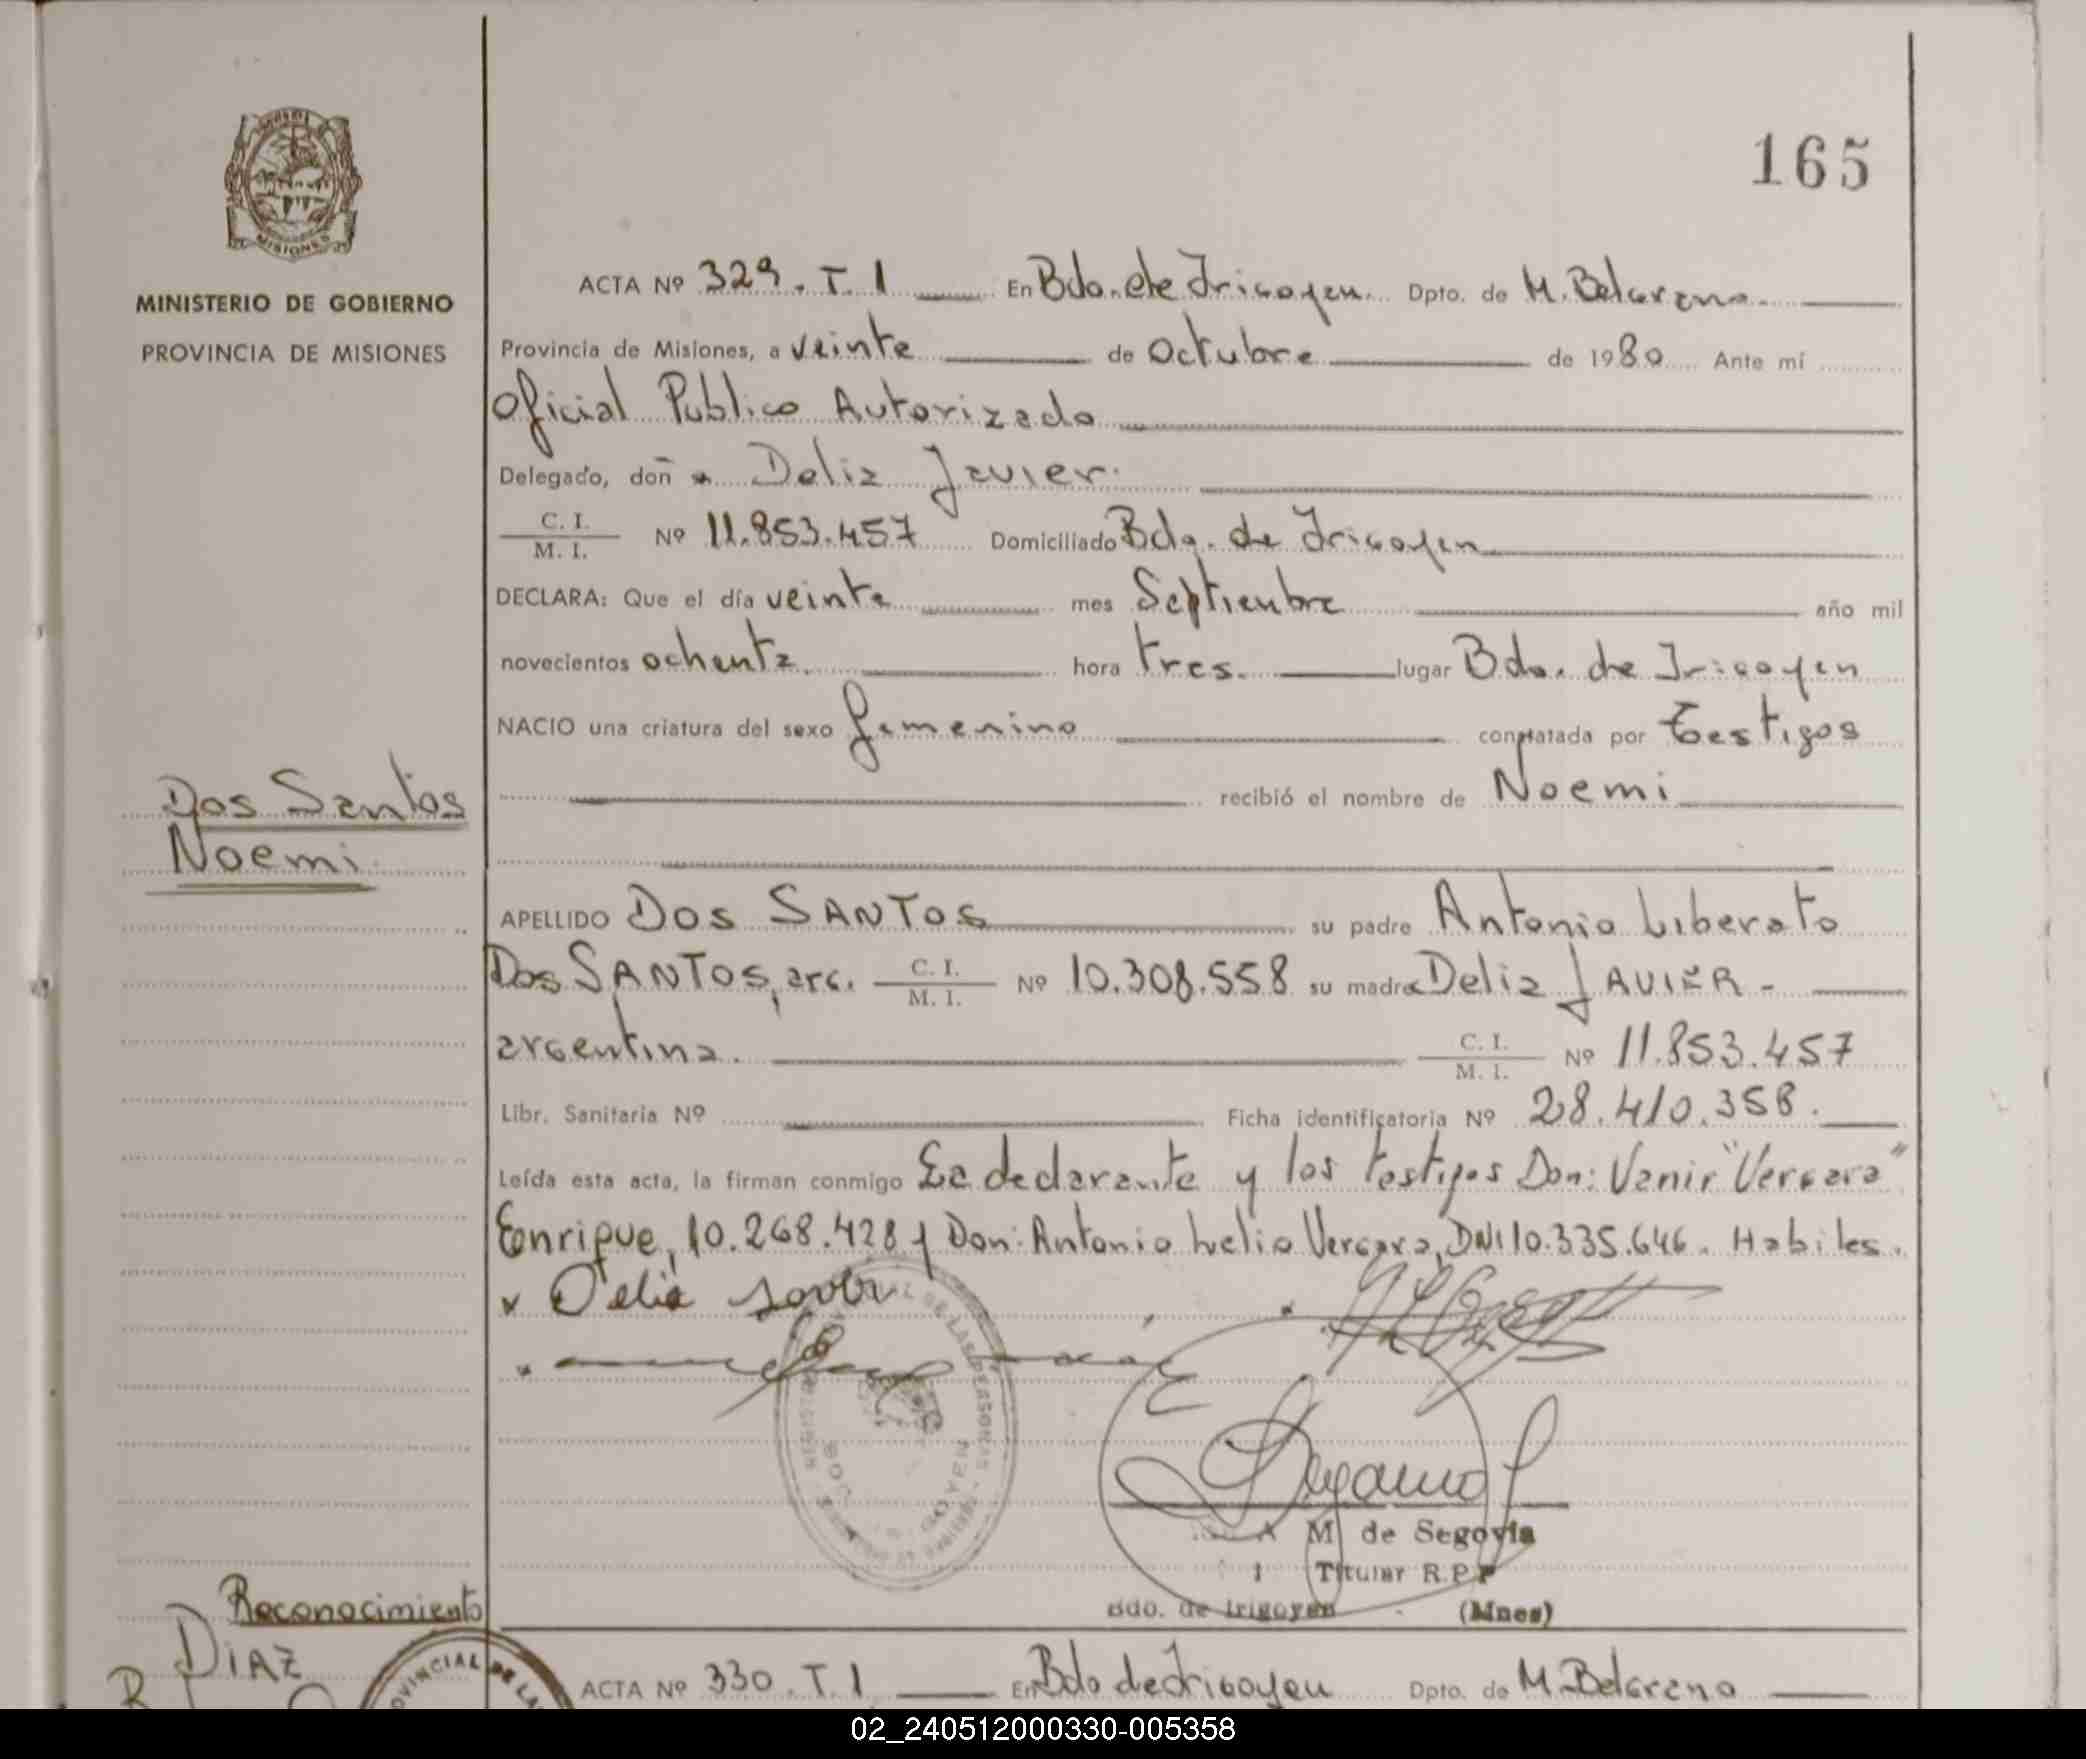 165
MISIONES
MINISTERIO DE GOBIERNO
PROVINCIA DE MISIONES
ACTA Nº 329. T. 1 En Bdo. de Irigoyen Dpto. de M. Belgrano.
Provincia de Misiones, a veinte de Octubre de 1980 Ante mí
Oficial Publico Autorizado
Delegado, doña Delia Javier.
C. I.
M. I. Nº 11.853.457 Domiciliado Bdo. de Irigoyen
DECLARA: Que el día veinte mes Septiembre año mil
novecientos ochenta hora tres. lugar Bdo. de Irigoyen
NACIO una criatura del sexo femenino constatada por testigos
recibió el nombre de Noemi
Dos Santos
Noemi
APELLIDO DOS SANTOS su padre Antonio Liberato
Dos SANTOS, arg. C. I. M. I. Nº 10.308.558 su madre Delia JAVIER -
argentina. C. I. M. I. Nº 11.853.457
Libr. Sanitaria Nº Ficha identificatoria Nº 28.410.358.
Leída esta acta, la firman conmigo La declarante y los testigos Don: Vanir "Vergara"
Enrique, 10.268.428 y Don: Antonio Lelio Vergara, DNI 10.335.646. Habiles.
x Delia Javier
A M de Segovia
Titular R.P.P
Bdo. de Irigoyen (Mnes)
Reconocimiento
DIAZ
ACTA Nº 330. T. 1 En Bdo de Irigoyen Dpto. de M. Belgrano
02_240512000330-005358